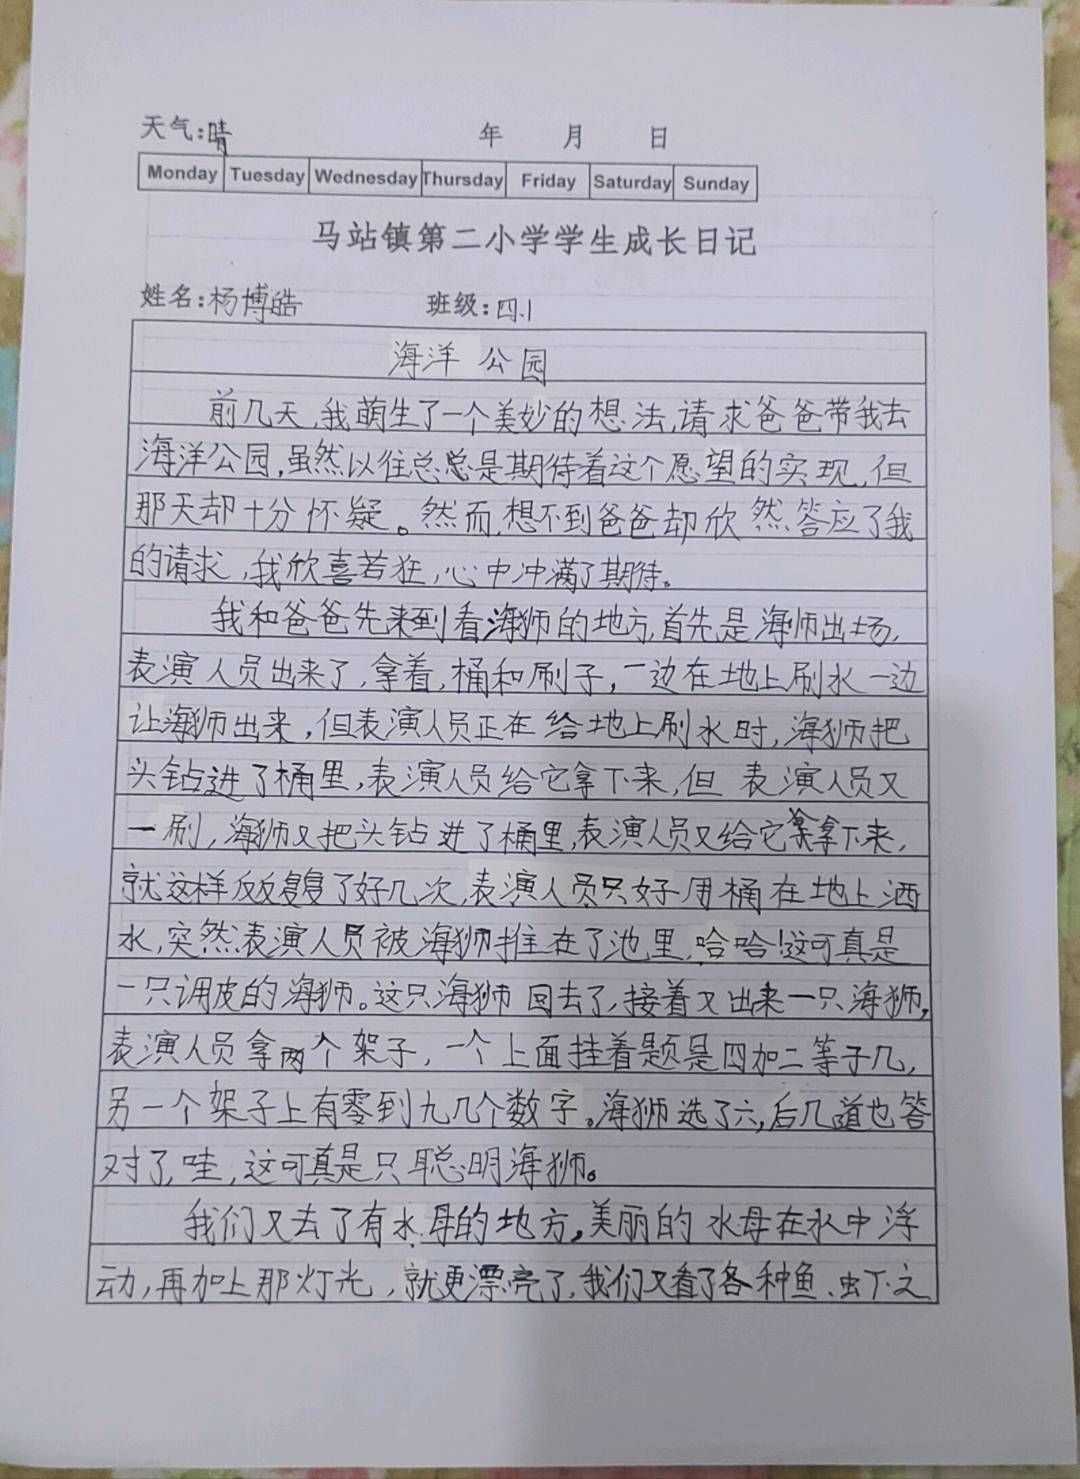 天气:晴 年 月 日
Monday Tuesday Wednesday Thursday Friday Saturday Sunday
马站镇第二小学学生成长日记
姓名:杨博皓 班级:四.1
海洋公园
前几天,我萌生了一个美妙的想法,请求爸爸带我去
海洋公园,虽然以往总总是期待着这个愿望的实现,但
那天却十分怀疑。然而,想不到爸爸却欣然答应了我
的请求,我欣喜若狂,心中冲满了期待。
我和爸爸先来到看海狮的地方,首先是海师出场,
表演人员出来了,拿着,桶和刷子,一边在地上刷水一边
让海狮出来,但表演人员正在给地上刷水时,海狮把
头钻进了桶里,表演人员给它拿下来,但表演人员又
一刷,海狮又把头钻进了桶里,表演人员又给它拿下来,
就这样反反复复了好几次,表演人员只好用桶在地上洒
水,突然表演人员被海狮推在了池里,哈哈!这可真是
一只调皮的海狮。这只海狮回去了,接着又出来一只海狮,
表演人员拿两个架子,一个上面挂着题是四加二等于几,
另一个架子上有零到九几个数字。海狮选了六,后几道也答
对了,哇,这可真是只聪明海狮。
我们又去了有水母的地方,美丽的水母在水中浮
动,再加上那灯光,就更漂亮了,我们又看了各种鱼、虫下之